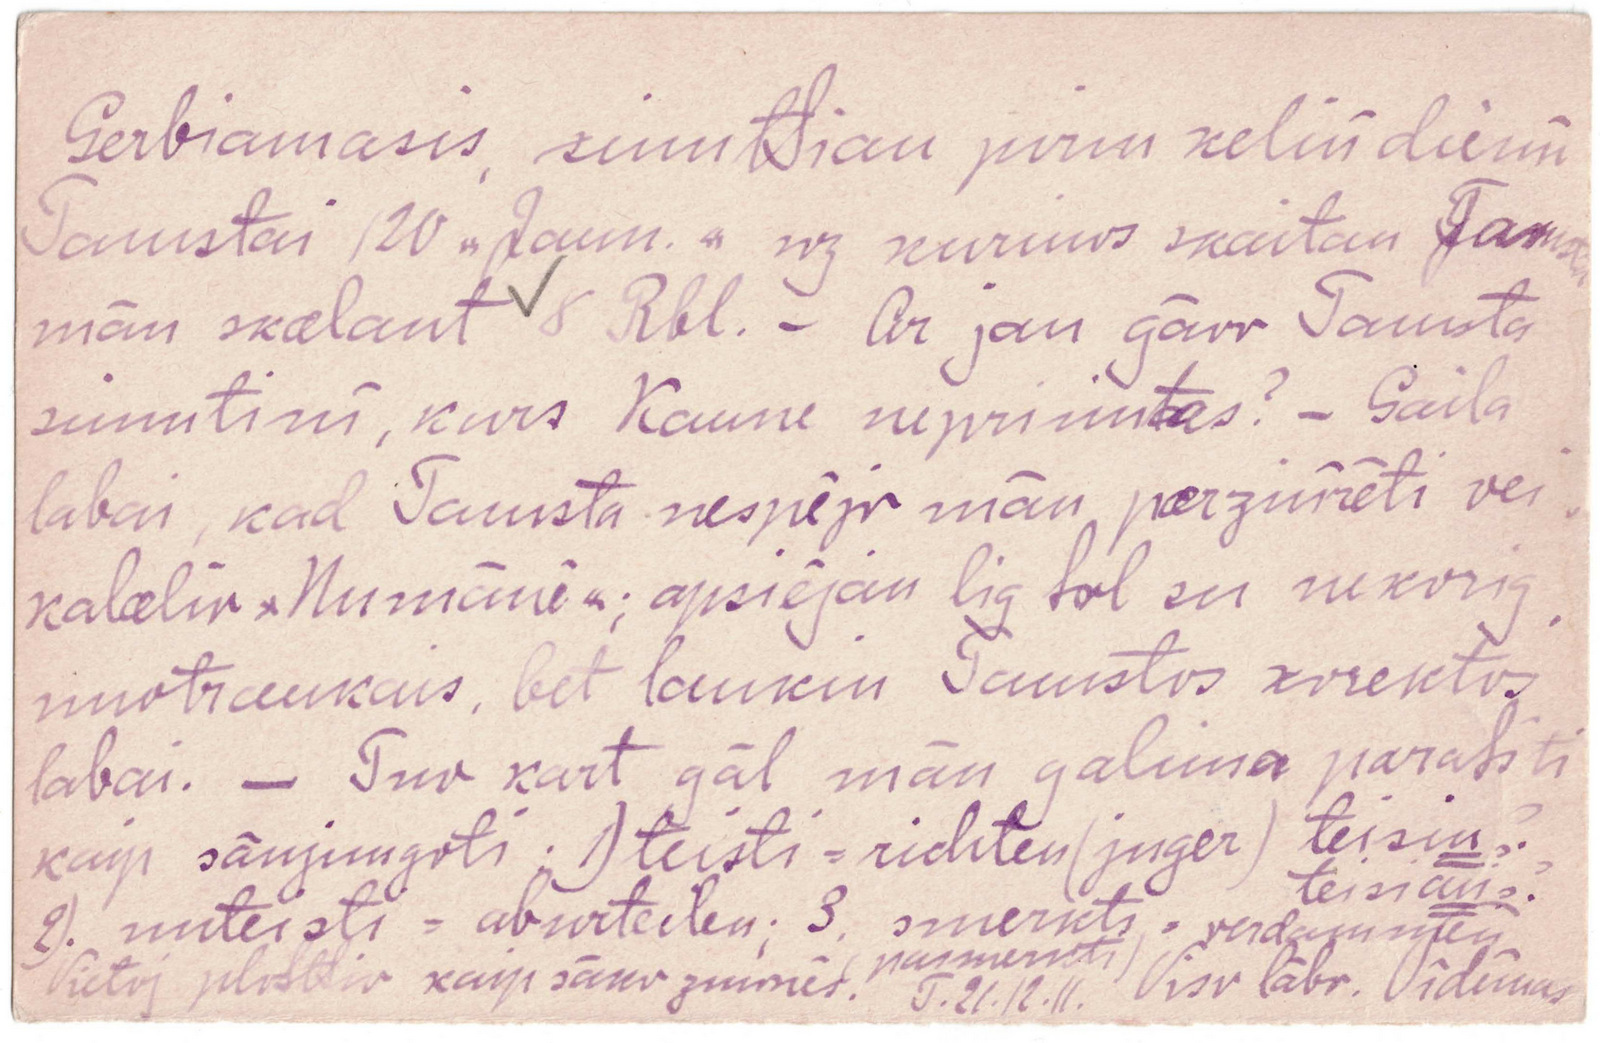 Gerbiamasis, siuntſiau pirm keliū dienū
Tamstai 120 „Jaun.“ uz kuriuos skaitau Tamsta
mān skælant 8 Rbl. – Ar jau gāvo Tamsta
siuntinī, kurs Kaune neprimtas? – Gaila
labai, kad Tamsta nespējo mān pærziūrēti vei-
kalælio „Numānē“; apsiējau lig ſol su nekorig.
nuotraukais, bet laukiu Tamstos korektos
labai. — Tuo kart gāl mān galima paraſiti
kaip sānjungoti: 1) teisti = richten (juger) teisiu?
teisiau?
2). nuteisti = aburteilen; 3. smerkti = verdammen
(pasmerkti)
Vietoj ploſtſio kaip sāko zmonēs. T. 21.12.11. Viso lābo. Vīdūnas